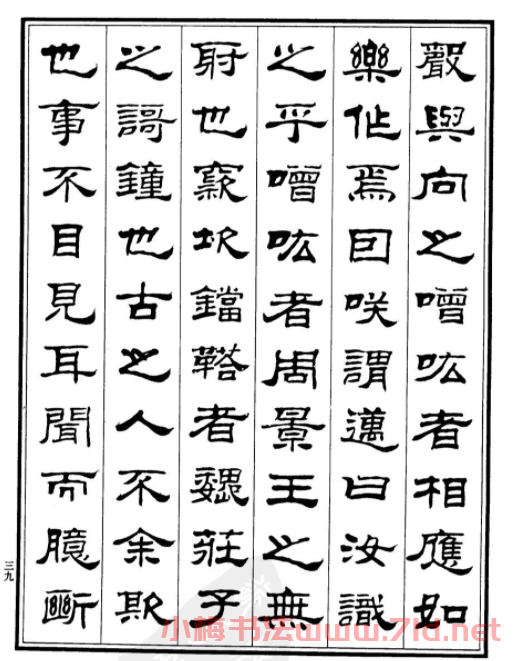 聲與向之噌吰者相應如
樂作焉因咲謂邁曰汝識
之乎噌吰者周景王之無
射也窾坎鏜鞳者魏莊子
之謌鐘也古之人不余欺
也事不目見耳聞而臆斷
三九
小梅书法www.71d.net